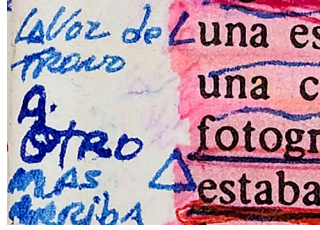 LA VOZ de
TROVO
A.
OTRO
MAS
ARRIBA
una es
una c
fotogr
estaba